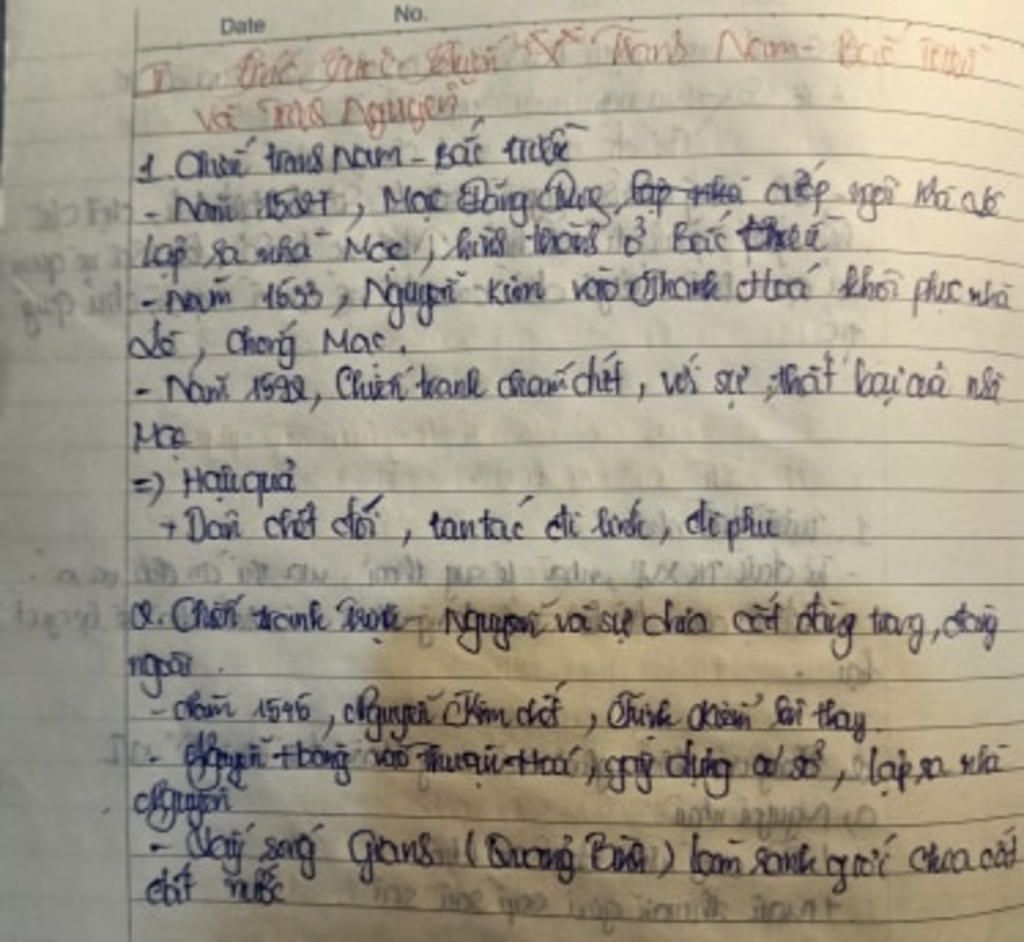 Date No.
II. Các cuộc chiến tranh Nam - Bắc triều
và Trịnh Nguyễn
1. Chiến tranh Nam - Bắc triều
- Năm 1527, Mạc Đăng Dung cướp ngôi nhà Lê
lập ra nhà Mạc, hình thành ở Bắc triều
- Năm 1533, Nguyễn Kim vào Thanh Hoá khôi phục nhà
Lê, chống Mạc.
- Năm 1592, Chiến tranh chấm dứt, với sự thất bại của nhà
Mạc
=) Hậu quả
+ Dân chết đói, tan tác đi lính, đi phu
2. Chiến tranh Trịnh - Nguyễn và sự chia cắt đàng trong, đàng
ngoài.
- Năm 1545, Nguyễn Kim chết, Trịnh Kiểm lên thay
- Nguyễn Hoàng vào Thuận Hoá, gây dựng cơ sở, lập ra nhà
Nguyễn
- Lấy sông Gianh (Quảng Bình) làm ranh giới chia cắt
đất nước